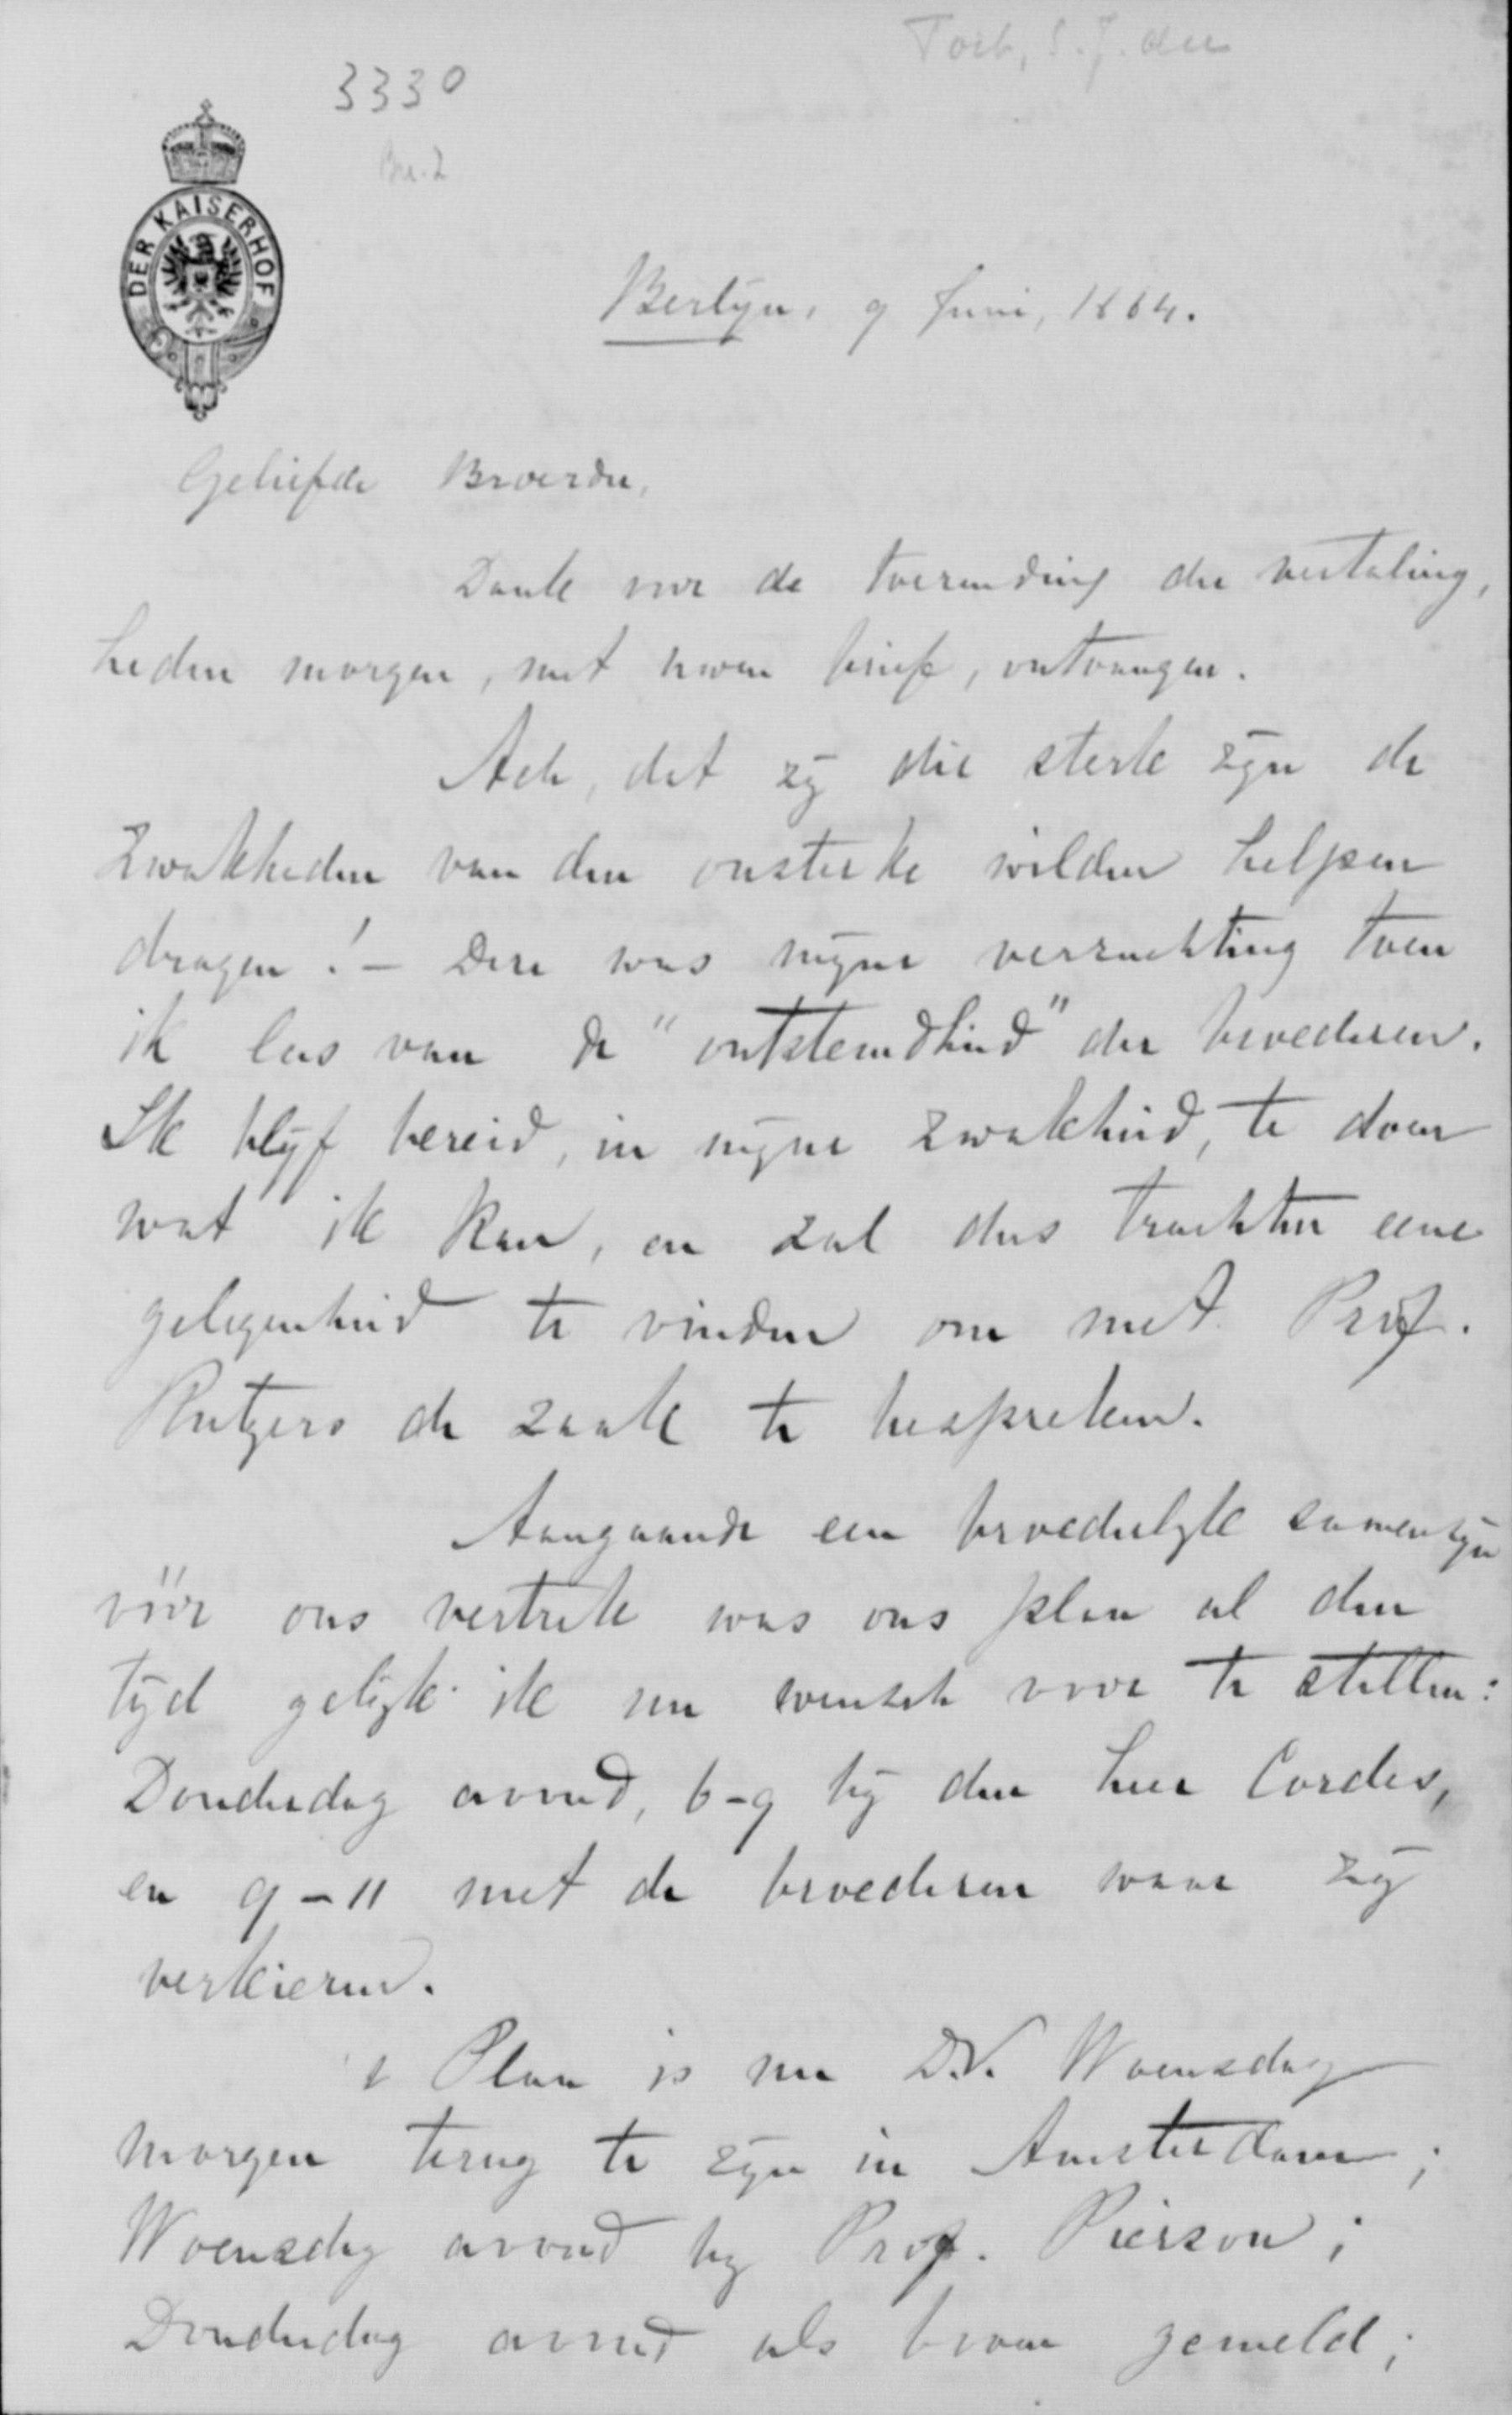 Toit, S.J. du
3330
DER KAISERHOF
Berlyn, 9 Juni, 1884.
Geliefde Broeder,
Dank voor de toezending der vertaling,
heden morgen, met uwen brief, ontvangen.
Ach, dat zy die sterk zyn de
zwakheden van den onsterke wilden helpen
dragen! – Deze was myne verzuchting toen
ik las van de "ontstemdheid" der broederen.
Ik blyf bereid, in myne zwakheid, te doen
wat ik kan, en zal dus trachten eene
gelegenheid te vinden om met Prof.
Rutgers de zaak te bespreken.
Aangaande een broederlyk samenzyn
vóór ons vertrek was ons plan al den
tyd gelyk ik nu wensch voor te stellen:
Donderdag avond, 6-9 by den heer Cordes,
en 9-11 met de broederen waar zy
verkiezen.
't Plan is nu D.V. Woensdag
morgen terug te zyn in Amsterdam;
Woensdag avond by Prof. Pierson;
Donderdag avond als boven gemeld;